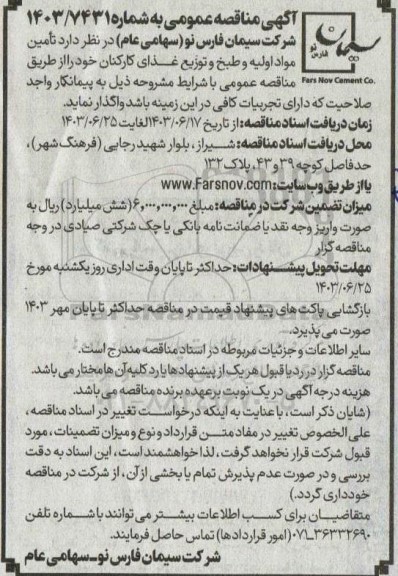 آگهی مناقصه عمومی به شماره ۱۴۰۳/۷۴۳۱
شرکت سیمان فارس نو (سهامی عام) در نظر دارد تأمین
مواد اولیه و طبخ و توزیع غذای کارکنان خود را از طریق
مناقصه عمومی با شرایط مشروحه ذیل به پیمانکار واجد
سیمان فارس نو
Fars Nov Cement Co.
صلاحیت که دارای تجربیات کافی در این زمینه باشد واگذار نماید.
زمان دریافت اسناد مناقصه: از تاریخ ۱۴۰۳/۰۶/۱۷ لغایت ۱۴۰۳/۰۶/۲۵
محل دریافت اسناد مناقصه: شیراز، بلوار شهید رجایی (فرهنگ شهر)،
حدفاصل کوچه ۳۹ و ۴۳، پلاک ۱۳۲
یا از طریق وب سایت: www.Farsnov.com
میزان تضمین شرکت در مناقصه: مبلغ ۶,۰۰۰,۰۰۰,۰۰۰ (شش میلیارد) ریال به
صورت واریز وجه نقد یا ضمانت نامه بانکی یا چک شرکتی صیادی در وجه
مناقصه گزار
مهلت تحویل پیشنهادات: حداکثر تا پایان وقت اداری روز یکشنبه مورخ
۱۴۰۳/۰۶/۲۵
بازگشایی پاکت های پیشنهاد قیمت در مناقصه حداکثر تا پایان مهر ۱۴۰۳
صورت می پذیرد.
سایر اطلاعات و جزئیات مربوطه در اسناد مناقصه مندرج است.
مناقصه گزار در رد یا قبول هر یک از پیشنهادها یا رد کلیه آن ها مختار می باشد.
هزینه درجه آگهی در یک نوبت بر عهده برنده مناقصه می باشد.
(شایان ذکر است، با عنایت به اینکه درخواست تغییر در اسناد مناقصه،
علی الخصوص تغییر در مفاد متن قرارداد و نوع و میزان تضمینات، مورد
قبول شرکت قرار نخواهد گرفت، لذا خواهشمند است، این اسناد به دقت
بررسی و در صورت عدم پذیرش تمام یا بخشی از آن، از شرکت در مناقصه
خودداری گردد.)
متقاضیان برای کسب اطلاعات بیشتر می توانند با شماره تلفن
۰۷۱-۳۶۳۳۲۶۹۰ (امور قراردادها) تماس حاصل فرمایند.
شرکت سیمان فارس نو-سهامی عام